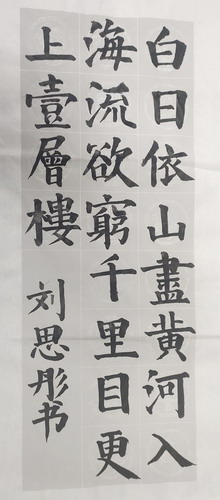 白日依山盡黄河入
海流欲窮千里目更
上壹層樓
刘思彤书